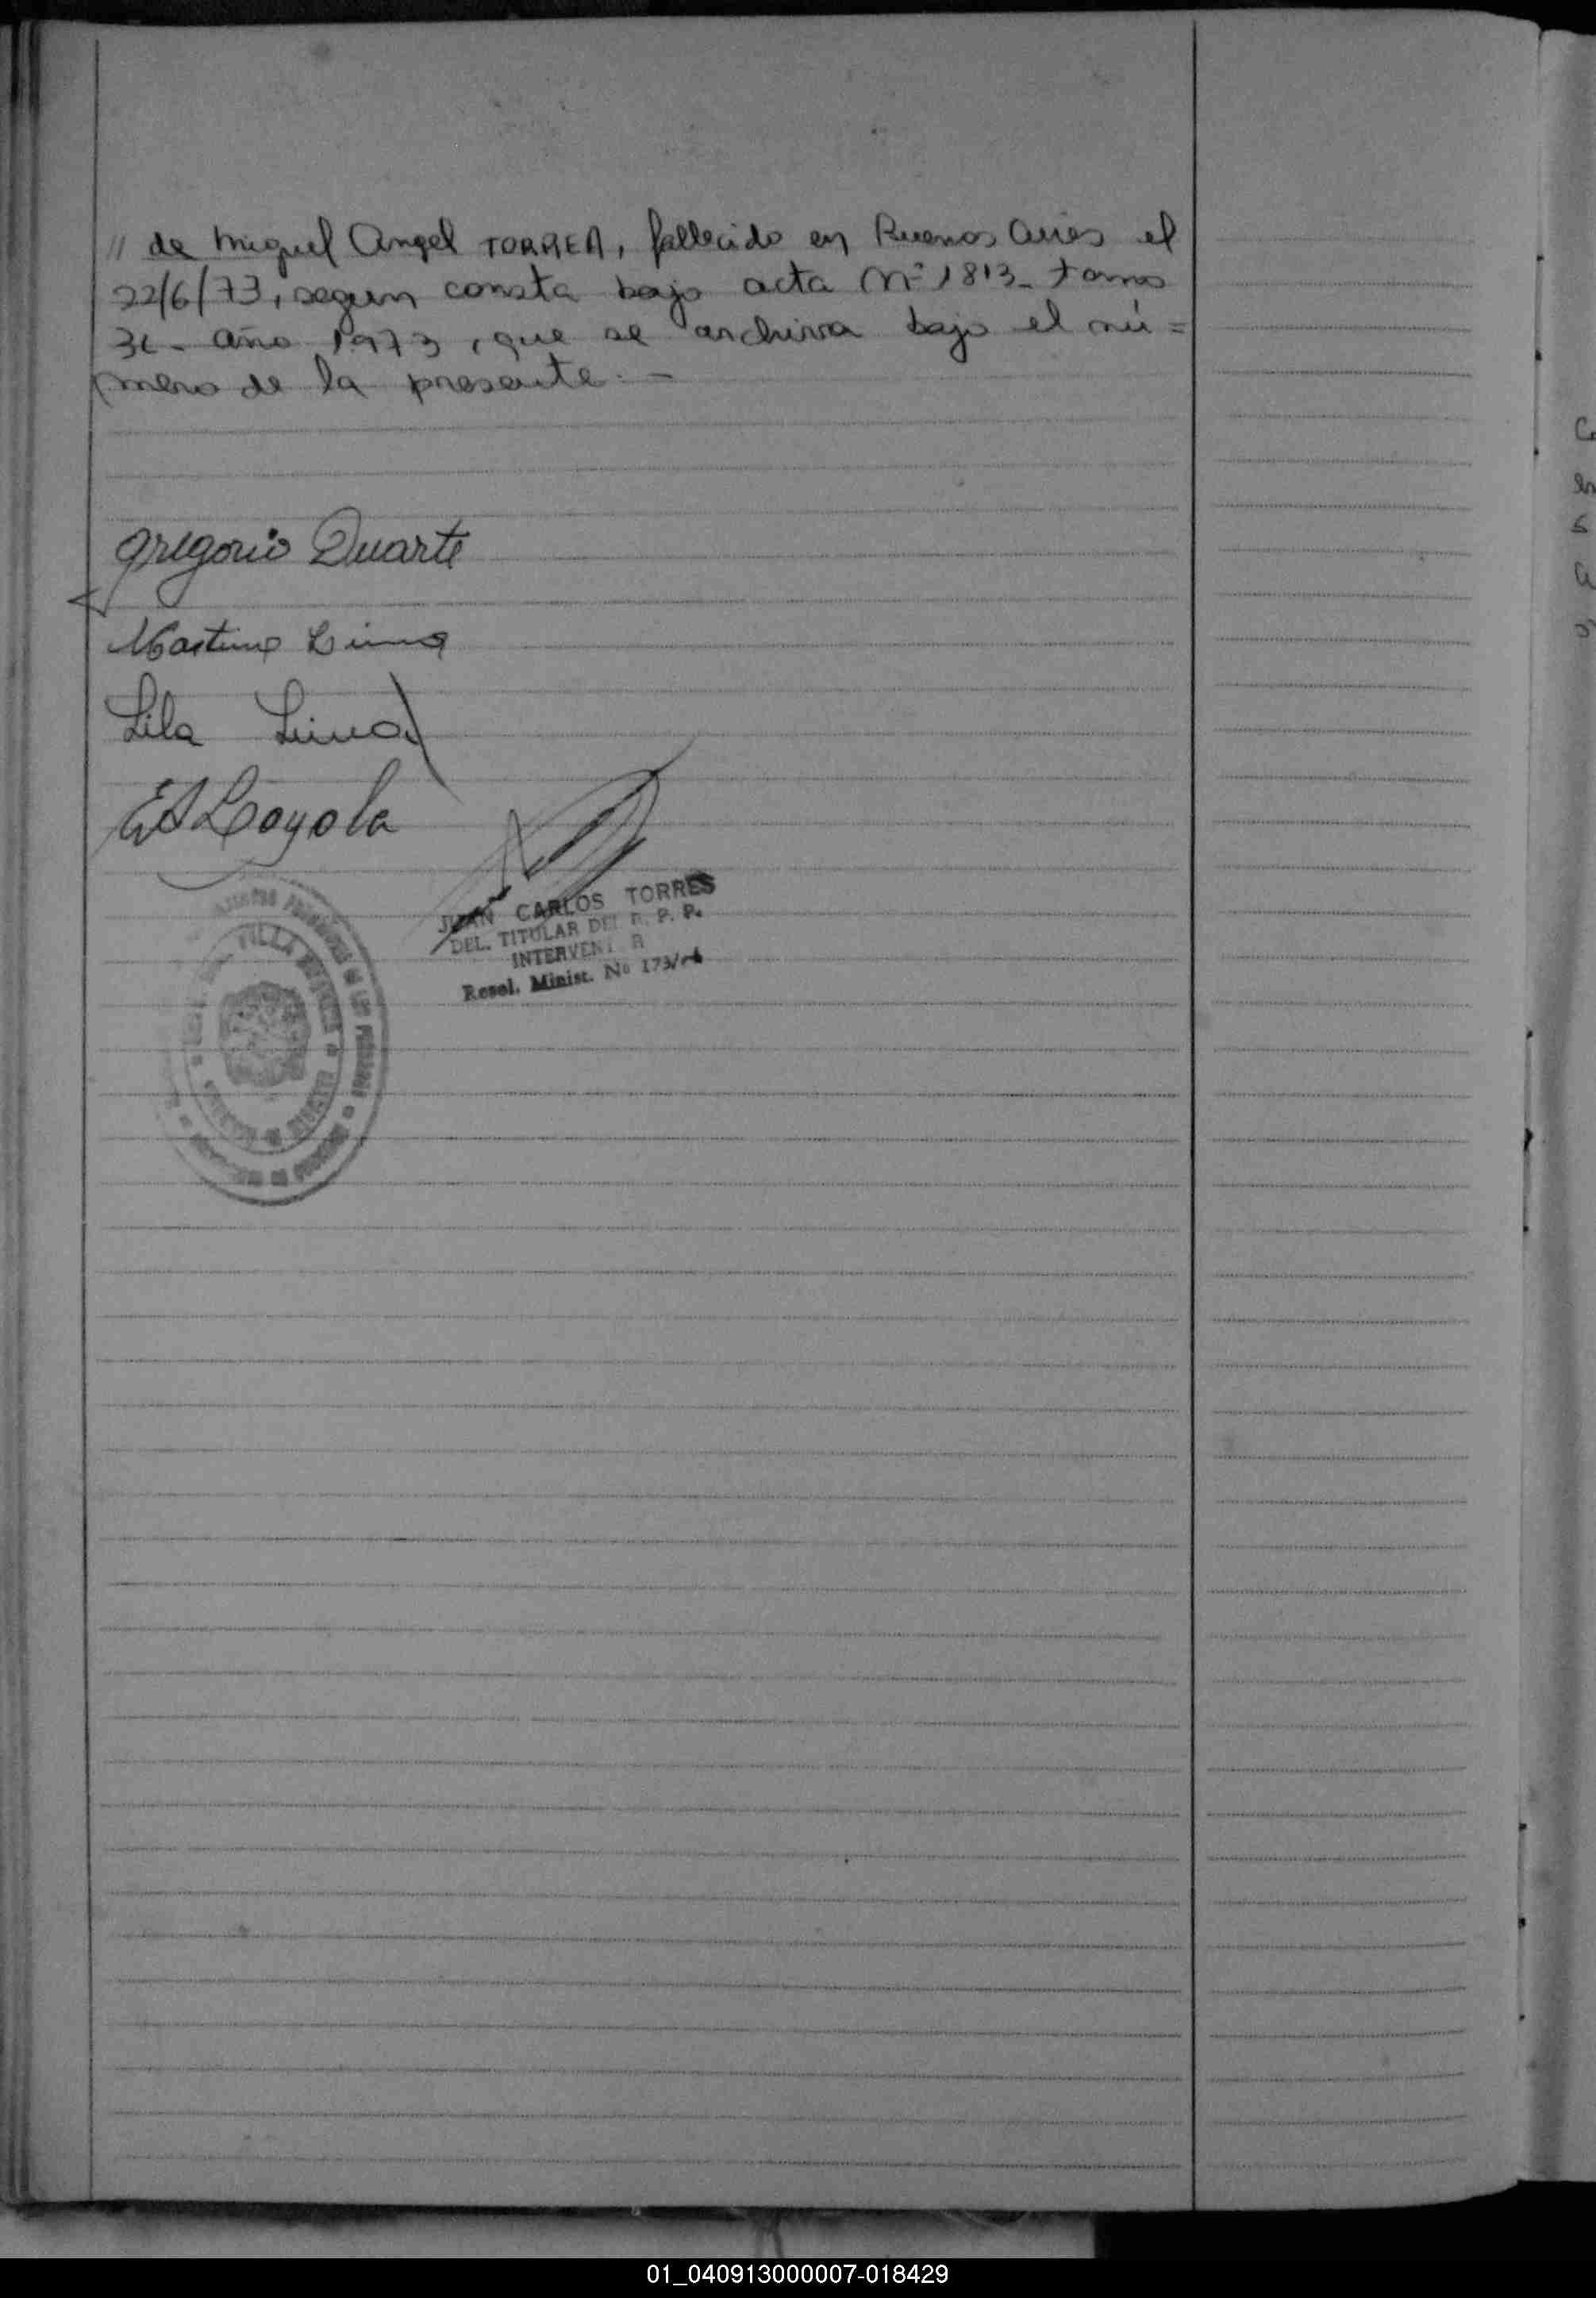 // de Miguel Angel TORREA, fallecido en Buenos Aires el
22/6/73, segun consta bajo acta Nº 1813 - tomo
3c - año 1973, que se archiva bajo el nú=
mero de la presente. -
gregorio Duarte
Martina Lima
Lila Lima
ES Loyola
JUAN CARLOS TORRES
DEL. TITULAR DEL R. P. P.
INTERVENT R
Resol. Minist. No 173/
VILLA
01_040913000007-018429